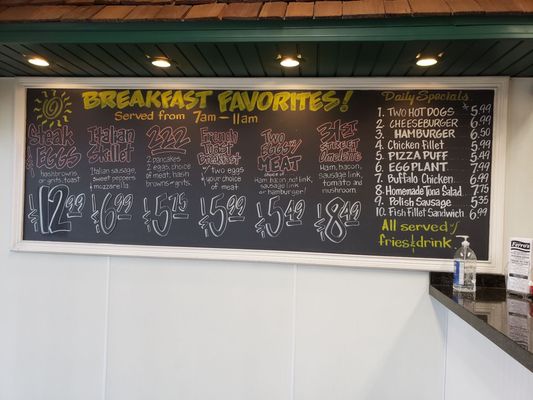 BREAKFAST FAVORITES!
Served from 7am - 11am
Steak
& EGGS
hashbrowns
or grits, toast
12.99
Italian
Skillet
Italian sausage,
sweet peppers
mozzarella
$6.99
222
2 pancakes
2 eggs, choice
of meat, hash
browns or grits
$5.75
French
Toast
Breakfast
w/ two eggs
& your choice
of meat
$5.99
Two
Eggs w/
MEAT
choice of
Ham, bacon,
sausage link
or hamburger
$5.49
31st
STREET
Omelette
Ham, bacon,
sausage link,
tomato and
mushroom
$8.49
Daily Specials
1. TWO HOT DOGS 5.99
2. CHEESEBURGER 6.99
3. HAMBURGER 6.50
4. Chicken Fillet 5.99
5. PIZZA PUFF 5.49
6. EGG PLANT 7.99
7. Buffalo Chicken 6.99
8. Homemade Tuna Salad 7.75
9. Polish Sausage 5.35
10. Fish Fillet Sandwich 6.99
All served w/
fries & drink